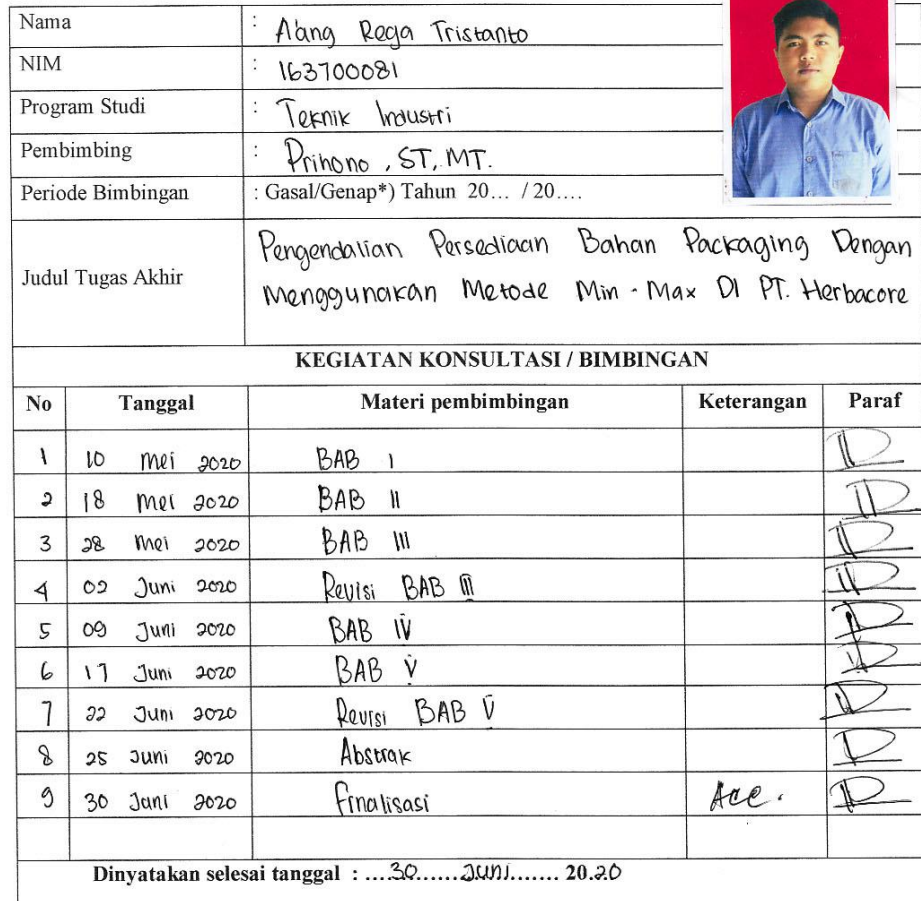 Nama : A'ang Rega Tristanto
NIM : 163700081
Program Studi : Teknik Industri
Pembimbing : Prihono , ST, MT.
Periode Bimbingan : Gasal/Genap*) Tahun 20... / 20....
Judul Tugas Akhir
Pengendalian Persediaan Bahan Packaging Dengan
Menggunakan Metode Min - Max DI PT. Herbacore
KEGIATAN KONSULTASI / BIMBINGAN
No Tanggal Materi pembimbingan Keterangan Paraf
1 10 Mei 2020 BAB I
2 18 Mei 2020 BAB II
3 28 Mei 2020 BAB III
4 02 Juni 2020 Revisi BAB III
5 09 Juni 2020 BAB IV
6 17 Juni 2020 BAB V
7 22 Juni 2020 Revisi BAB V
8 25 Juni 2020 Abstrak
9 30 Juni 2020 Finalisasi Acc.
Dinyatakan selesai tanggal : ....30......Juni....... 20.20